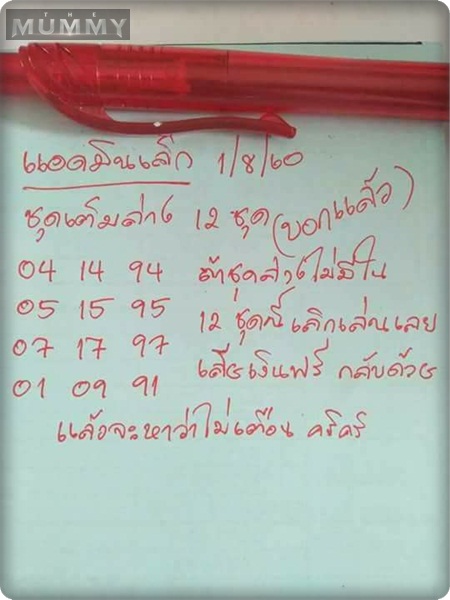 THE
MUMMY
แอดมินเล็ก 1/8/60
ชุดเต็มล่าง 12 ชุด (บอกแล้ว)
04 14 94 ถ้าชุดล่างไม่มีใน
05 15 95 12 ชุดนี้ เลิกเล่นเลย
07 17 97 เสียเงินฟรี กลับด้วย
01 09 91
แล้วจะหาว่าไม่เตือน คริคริ